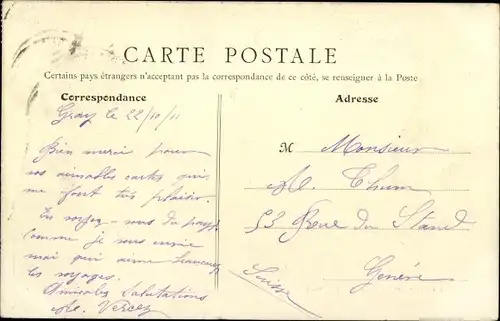 CARTE POSTALE
Certains pays étrangers n'acceptant pas la correspondance de ce côté, se renseigner à la Poste
Correspondance
Gray le 22/10/11
Bien merci pour
vos aimables cartes qui
me font très plaisir.
En voyez-vous du pays,
comme je vous envie
moi qui aime beaucoup
les voyages.
Amicales Salutations
Adresse
M Monsieur
Thum
53 Rue du Stand
Genève
Suisse